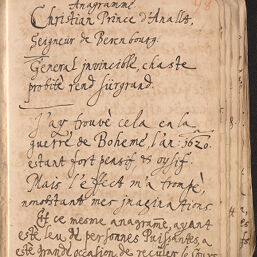 Anagramme.
Christian Prince d'Anallt,
Seigneur de Berenbourg.
General invincible, chaste
probité rend sürgrand.
J'ay trouvè cela en la
guerre de Boheme, l'an: 1620.
estant fort pensif & oysif.
Mais l'effect m'a trompè,
nonobstant mes imaginations
Et ce mesme anagrame, ayant
estè leu de personnes Puissantes, a
estè grande occasion de reculer le cours